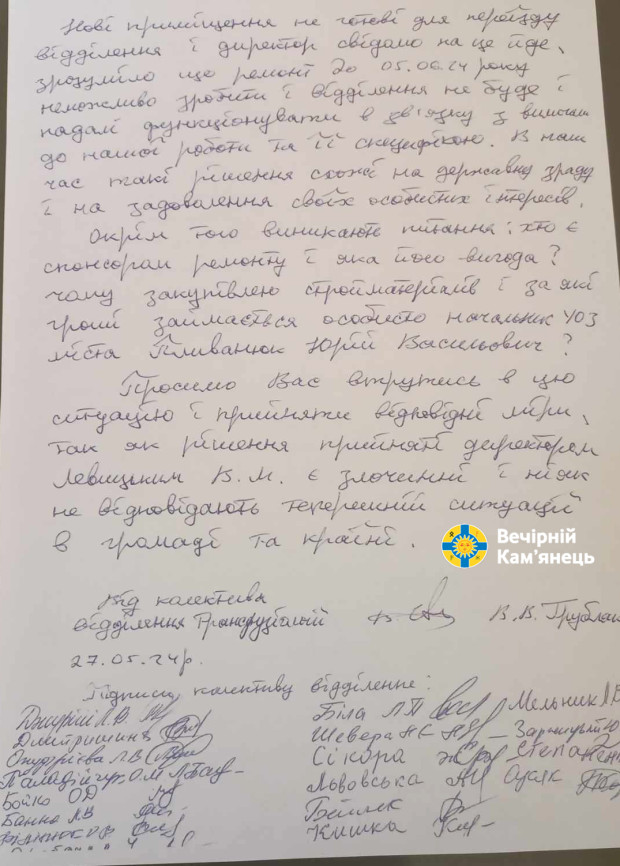 Нові приміщення не готові для переїзду
відділення і директор свідомо на це йде,
зрозуміло що ремонт до 05.06.24 року
неможливо зробити і відділення не буде і
надалі функціонувати в зв'язку з вимогами
до нашої роботи та її специфікою. В наш
час такі рішення схожі на державну зраду
і на задоволення своїх особистих інтересів.
Окрім того виникають питання: хто є
спонсорам ремонту і яка його вигода?
чому закупівлею стройматеріалів і за які
гроші займається особисто начальник УОЗ
міста Пливанюк Юрій Васильович?
Просимо Вас втрутись в цю
ситуацію і прийняти відповідні міри,
так як рішення прийняті директором
Левицьким В.М. є злочинні і ніяк
не відповідають теперешній ситуації
в громаді та країні.
Вечірній
Кам'янець
Від колектива
відділення Трансфузіологій
В.В.
27.05.24р.
Підписи колективу відділення:
Біла Л П
Мельник
Дмитришина
Шевера
Сікора
Степаненко
Бойко О Д
Львовська
Кишка